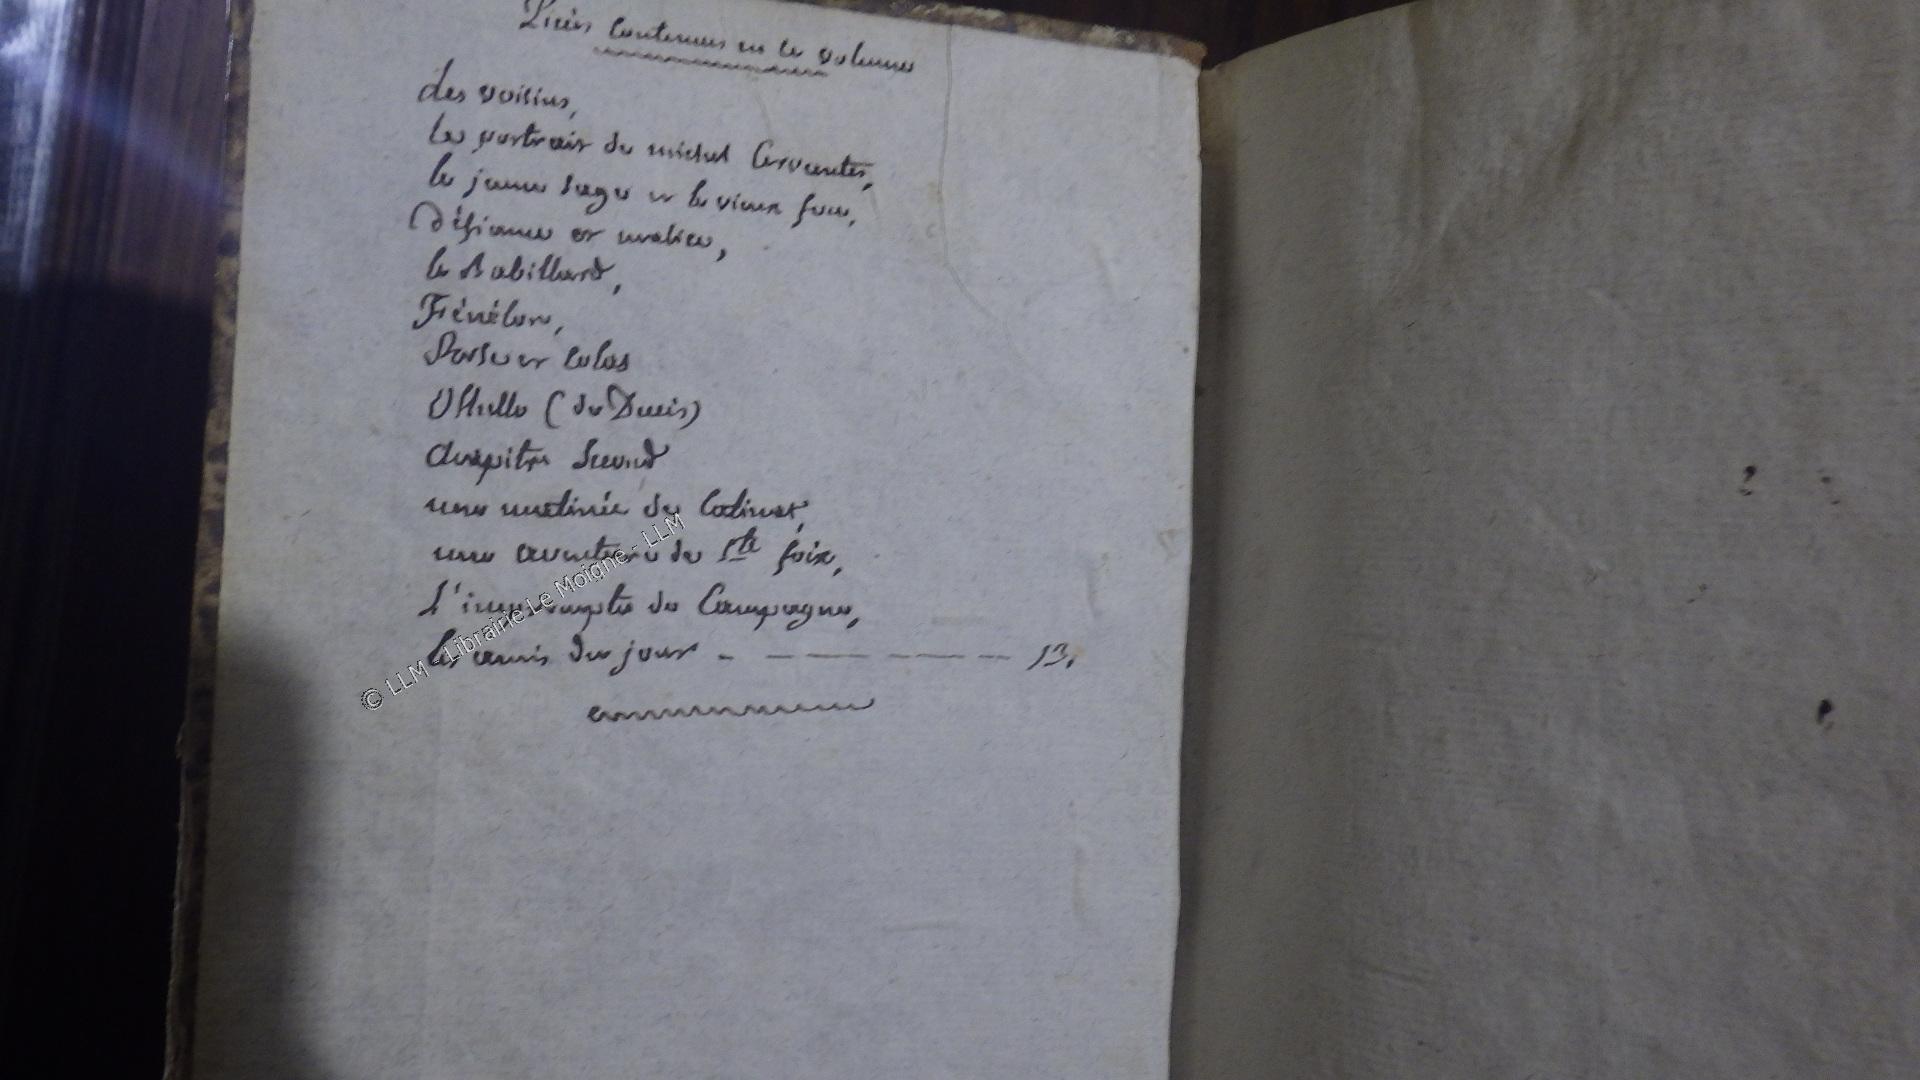 Pièces contenues en ce volume
des voisins,
le portrait de michel Cervantes,
le jeune sage et le vieux fou,
Défiance et malice,
le Babillard,
Fénélon,
Rose et Colas
Othello (de Ducis)
Chapitre Second
une matinée de Catinat,
une aventure de Ste foix,
L'inconséquente de Campagne,
les amis du jour - - - - - - 13.
© LLM - Librairie Le Moigne - LLM